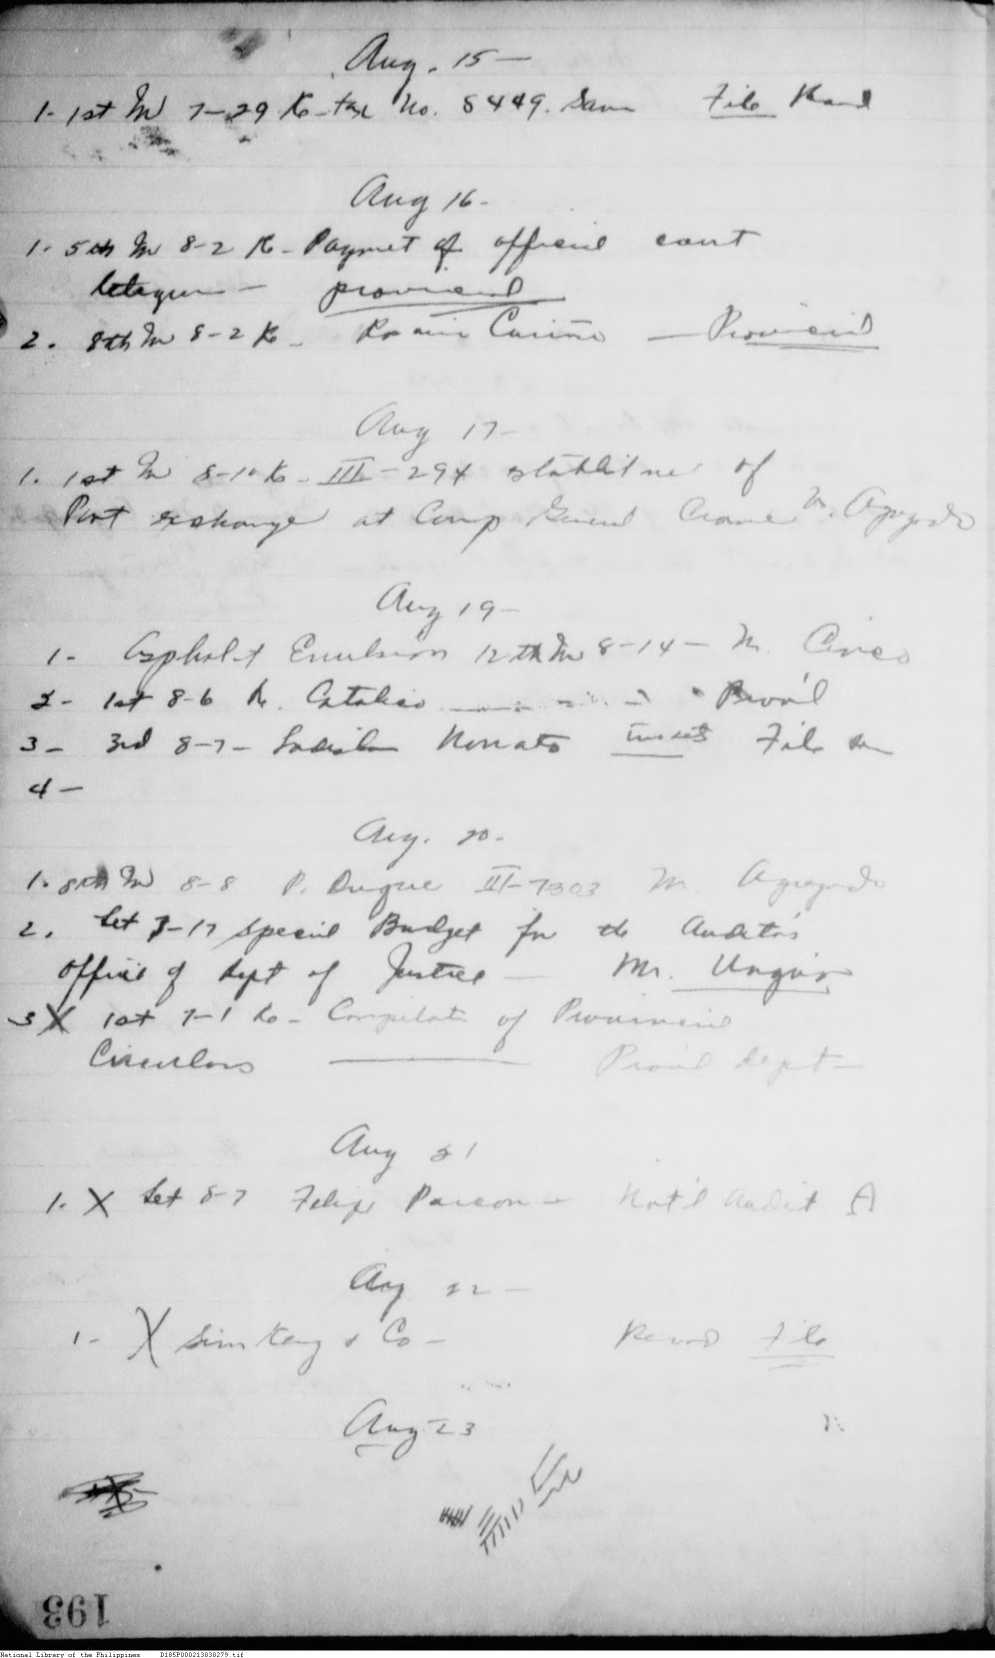 Aug. 15 —
1. 1st In 7-29 Re - No. 8449. File
Aug 16 -
1. 5th In 8-2 Re - Paymet of official court
— provincial
2. 8th In 8-2 Re - — Provincial
Aug 17 -
1. 1st In 8-10 Re - III - 294 of
Post exchange at Camp General Crame M. Agregado
Aug 19 -
1 - Asphalt Emulsion 12th In 8-14 - M.
2 - 1st 8-6 R. Catalico Prov'l
3 - 3rd 8-7 - Nonato File
4 -
Aug. 20 -
1. 8th In 8-8 P. Duque III-7303 M. Agregado
2. Let 7-17 Special Budget for the Auditor's
Office of Dept of Justice — Mr. Ungson
3 X 1st 7-1 Re - Compilation of Provincial
Circulars — Prov'l Dept -
Aug 21
1. X Let 8-7 Felipe - Nat'l Audit A
Aug 22 -
1 - X & Co - Record File
Aug 23
193
National Library of the Philippines D185P000213838279.tif